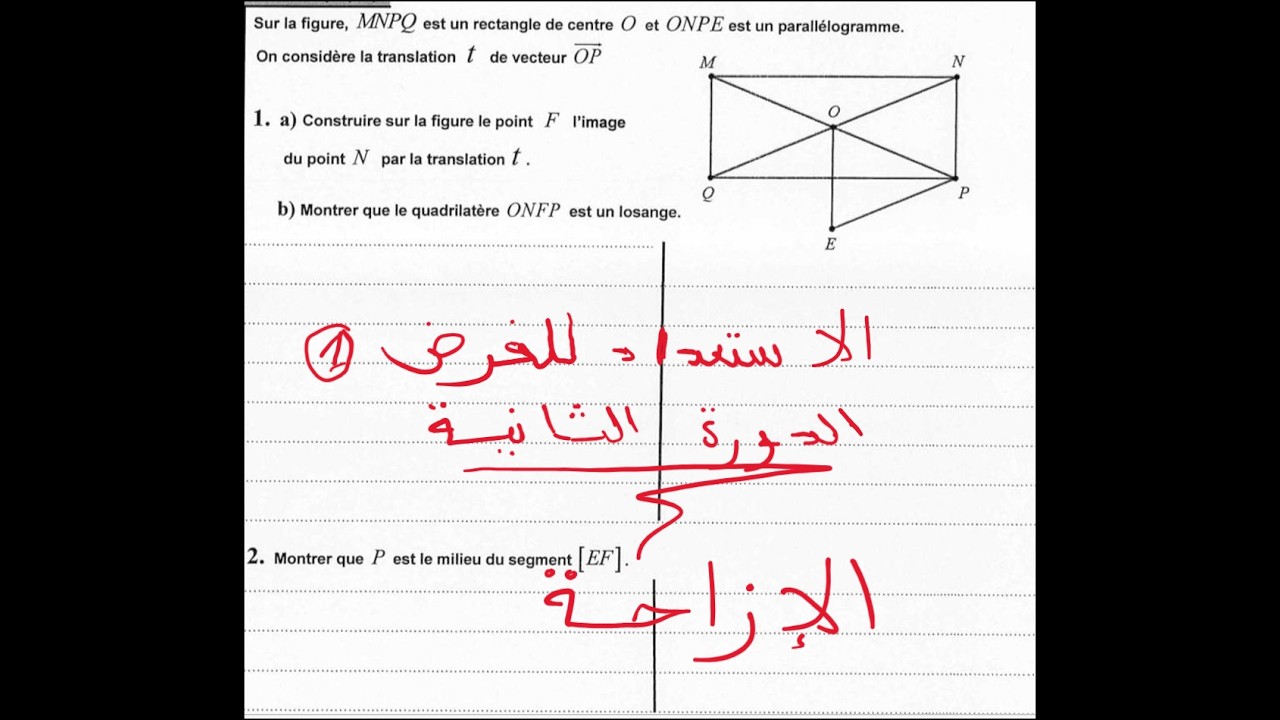 Sur la figure, MNPQ est un rectangle de centre O et ONPE est un parallélogramme.
On considère la translation t de vecteur OP
M
N
O
Q
P
E
1. a) Construire sur la figure le point F l'image
du point N par la translation t .
b) Montrer que le quadrilatère ONFP est un losange.
الاستعداد للفرض 1
الدورة الثانية
2. Montrer que P est le milieu du segment [EF].
الإزاحة